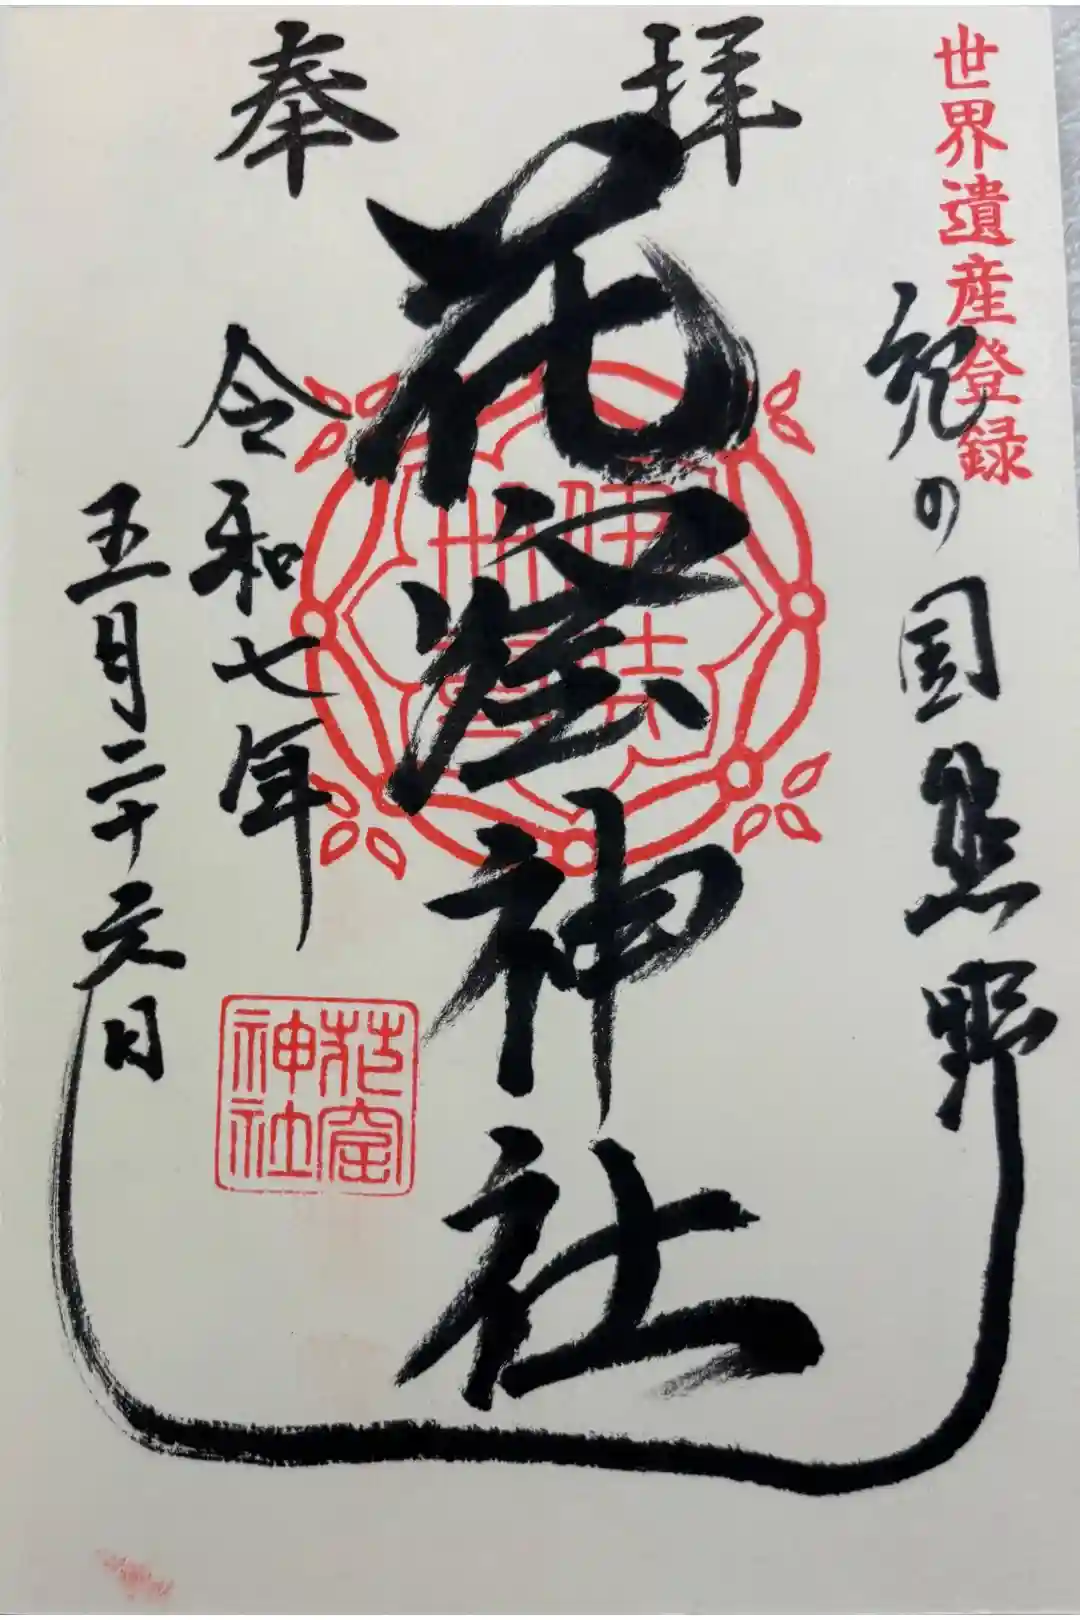 世界遺産登録
奉拝
紀の国熊野
花窟神社
令和七年
五月二十六日
花窟
神社